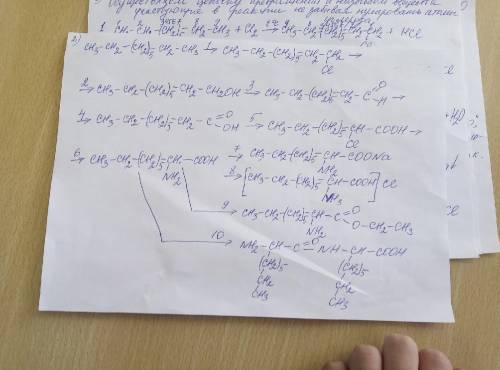 3) Осуществляем цепочку превращений и называем вещества
1 CH₃-CH₂-(CH₂)₅-CH₂-CH₃ + Cl₂ → CH₃-CH₂-(CH₂)₅-CH₂-CH₂ + HCl
2) CH₃-CH₂-(CH₂)₅-CH₂-CH₃ 1→ CH₃-CH₂-(CH₂)₅-CH₂-CH₂ →
Cl
2→ CH₃-CH₂-(CH₂)₅-CH₂-CH₂OH 3→ CH₃-CH₂-(CH₂)₅-CH₂-C=O -H →
4→ CH₃-CH₂-(CH₂)₅-CH₂-C=O OH 5→ CH₃-CH₂-(CH₂)₅-CH-COOH →
Cl
6→ CH₃-CH₂-(CH₂)₅-CH-COOH 7→ CH₃-CH₂-(CH₂)₅-CH-COONa
NH₂ NH₂
8→ [CH₃-CH₂-(CH₂)₅-CH-COOH]Cl
NH₃
9→ CH₃-CH₂-(CH₂)₅-CH-C=O
NH₂ O-CH₂-CH₃
10→ NH₂-CH-C=O-NH-CH-COOH
(CH₂)₅- (CH₂)₅-
CH₂ CH₂
CH₃ CH₃